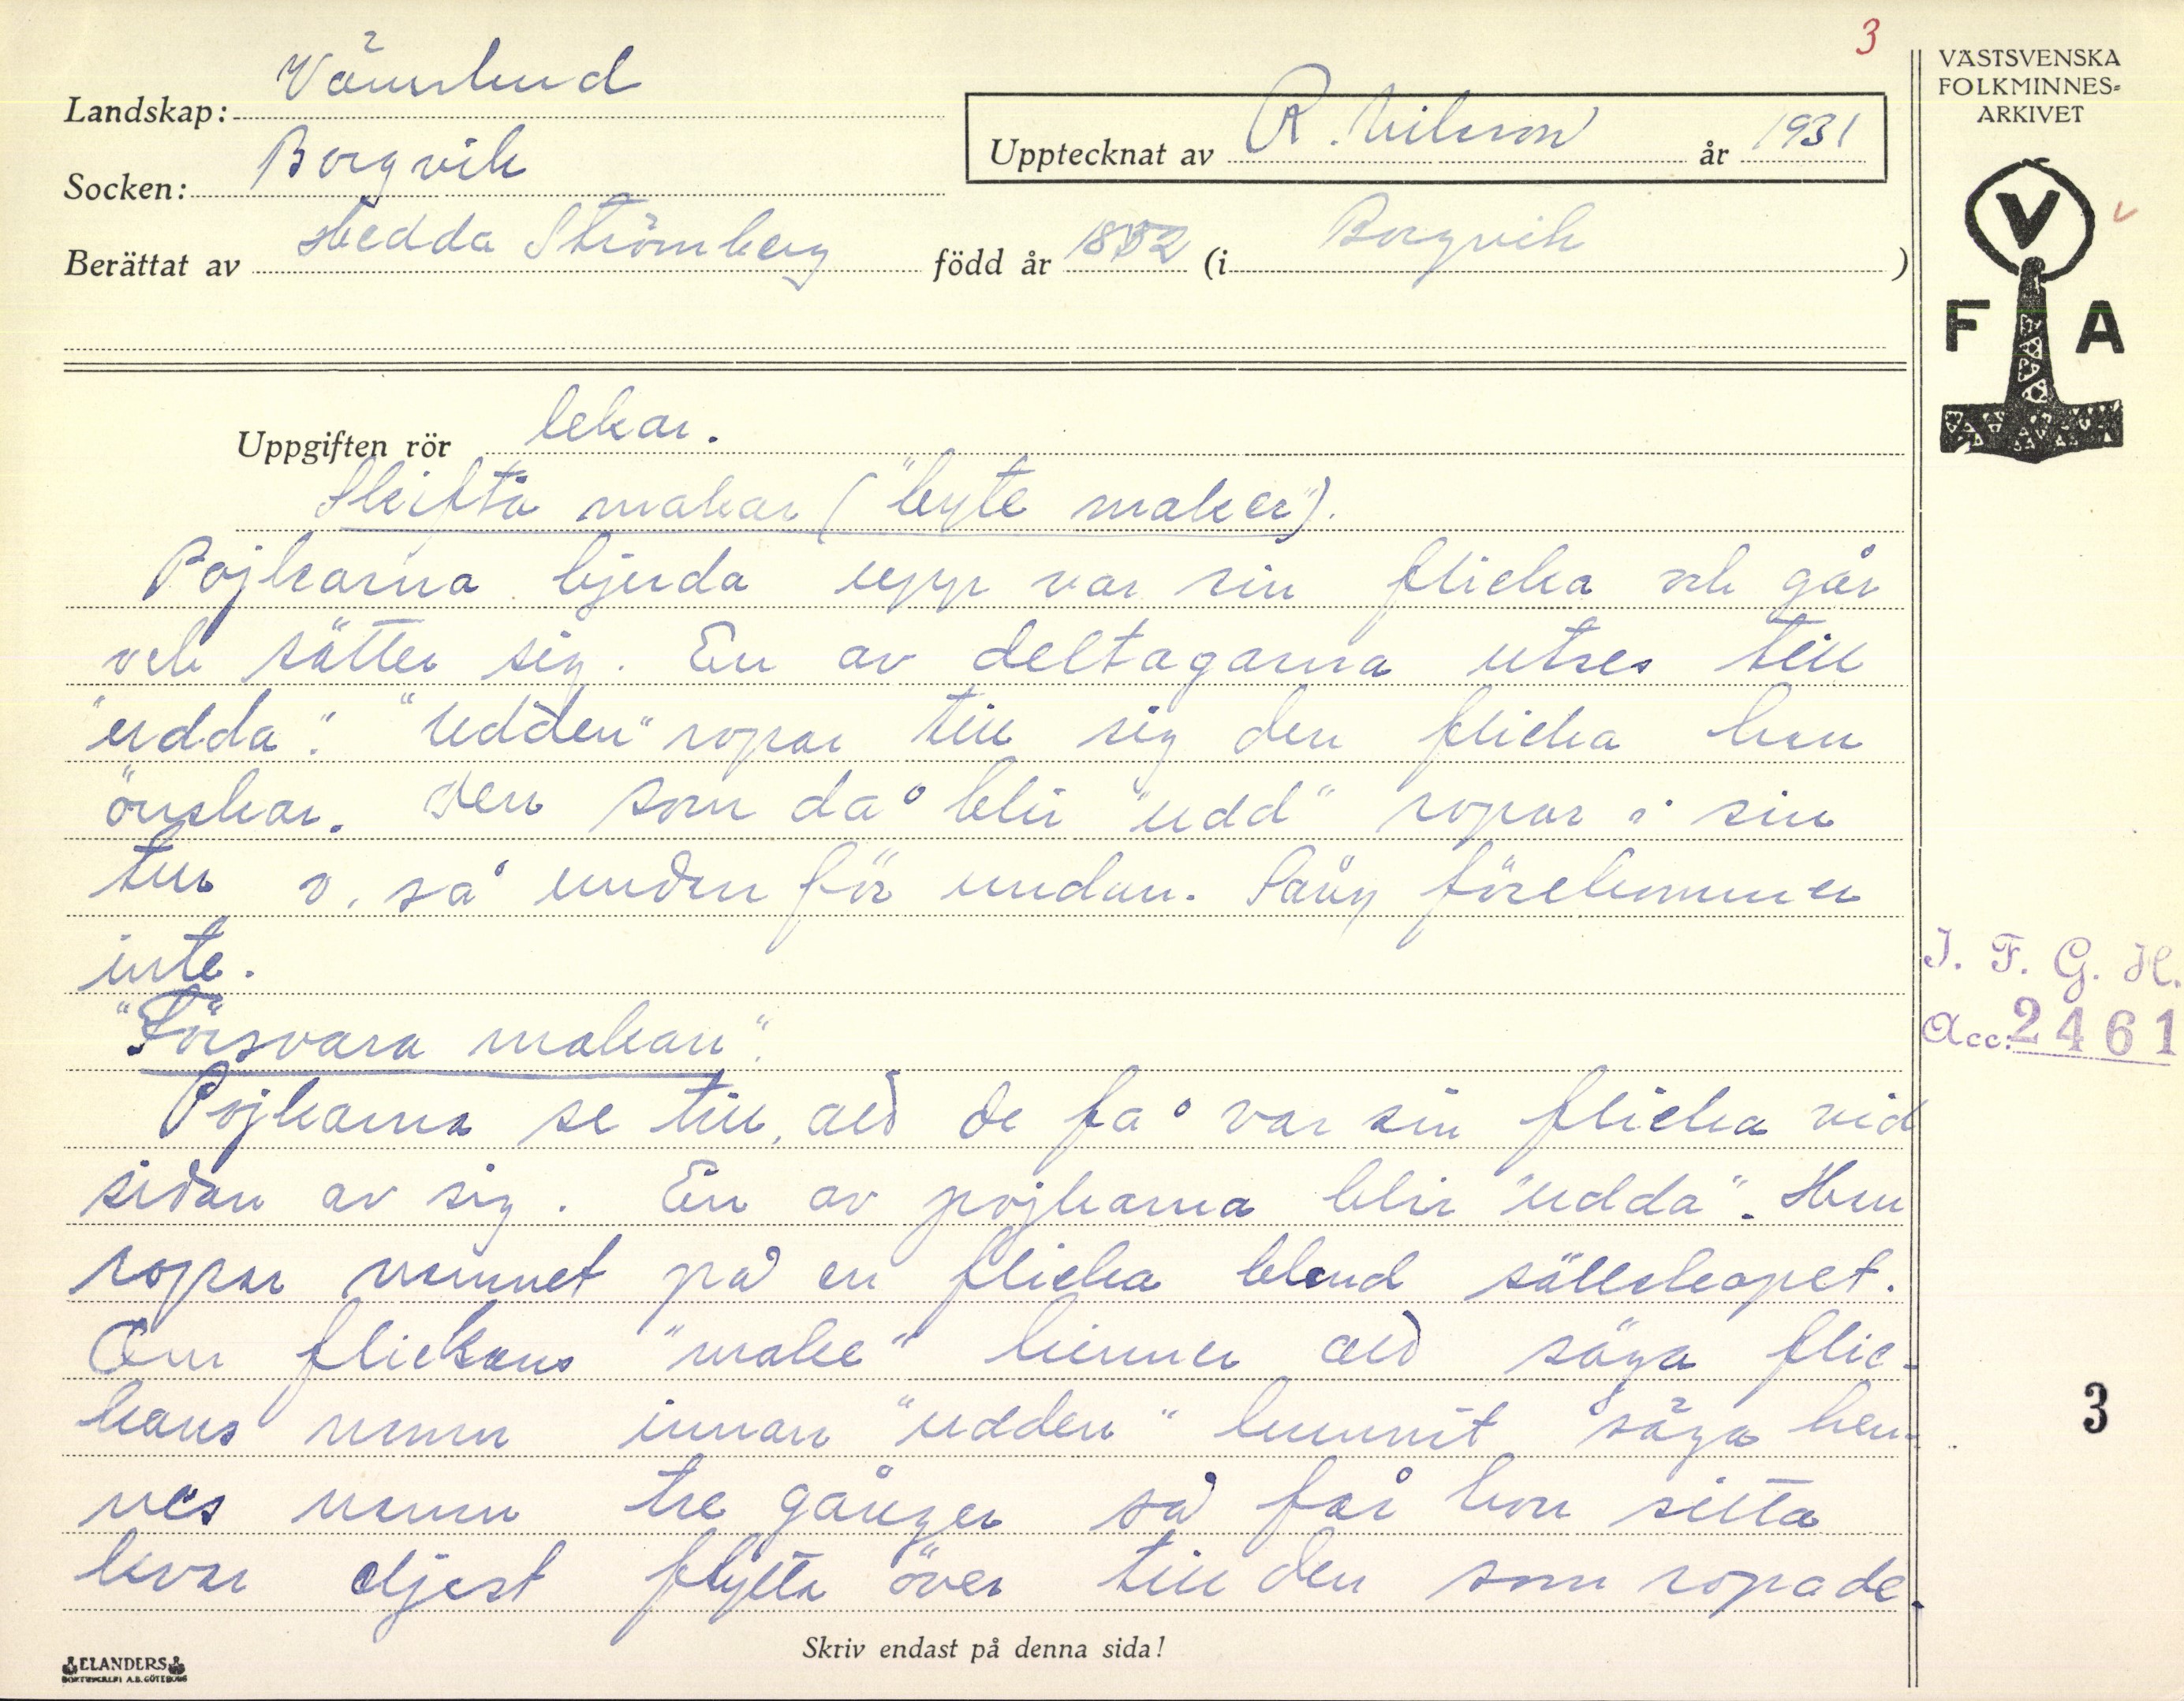 3
VÄSTSVENSKA
FOLKMINNES-
ARKIVET
Landskap: Värmland
Upptecknat av R. Nilsson år 1931
Socken: Borgvik
Berättat av Hedda Strömberg född år 1852 (i Borgvik)
V
F A
Uppgiften rör lekar.
Skifta makar ("byte maker").
Pojkarna bjuda upp var sin flicka och går
och sätter sig. En av deltagarna utses till
"udda". "Udden" ropar till sig den flicka han
önskar. Den som då blir "udd" ropar i sin
tur o. så undan för undan. Sång förekommer
inte.
"Försvara makan".
Pojkarna se till, att de få var sin flicka vid
sidan av sig. En av pojkarna blir "udda". Han
ropar namnet på en flicka bland sällskapet.
Om flickans "make" hinner att säga flic-
kans namn innan "udden" hunnit säga hen-
nes namn tre gånger så får hon sitta
kvar eljest flytta över till den som ropade.
I. F. G. H.
Acc: 2461
3
Skriv endast på denna sida!
ELANDERS
BOKTRYCKERI A.B. GÖTEBORG